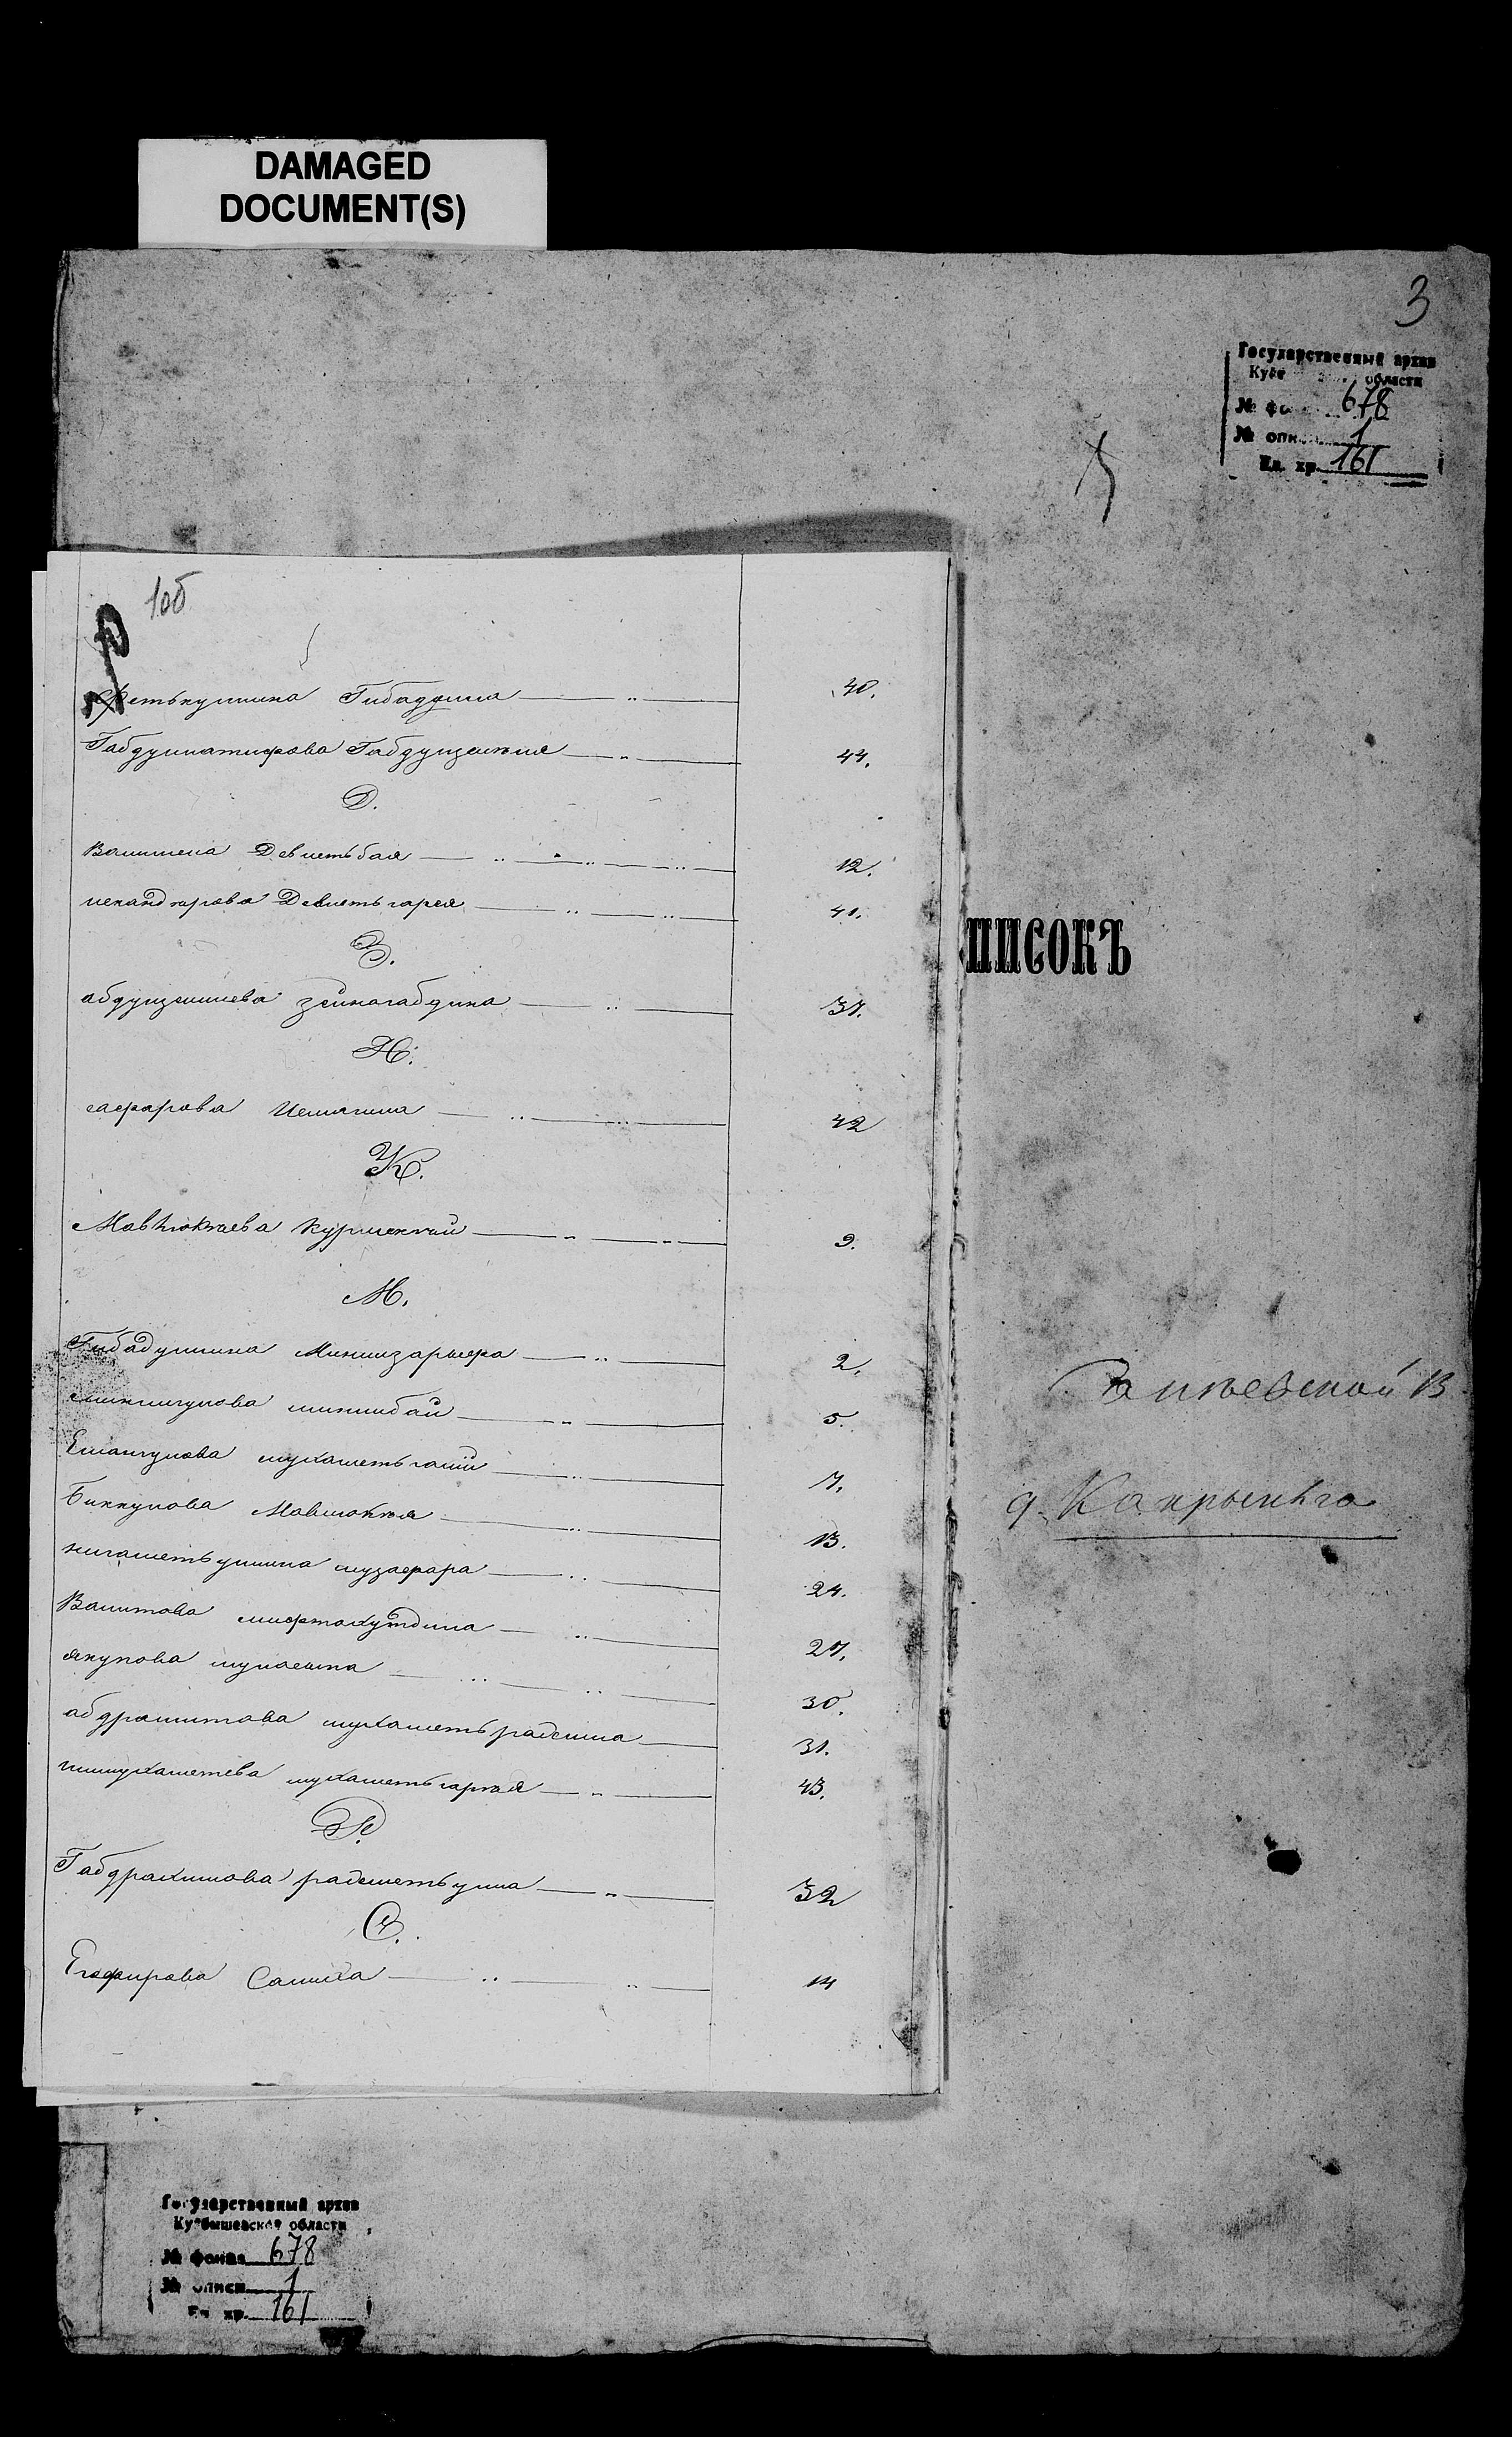 DAMAGED
DOCUMENT(S)
3
Государственный архив
области
678
№ опи 1
Ед. хр. 161
1об
Фетькуллина Гибадулла 40.
Габдуллатифова Габдулжалиля 44.
Д.
Валишева Девлетьбая 12.
искандярова Девлетьгарея 41.
З.
абдулженилева зейногабдина 37.
И.
сафарова Исмагила 42
К.
Мавлюкаева Курмекай 9.
М.
Гибадуллина Миннизарыфа 2.
миннигулова миннибай 5.
Емангулова мухаметьгалий 7.
Биккулова Мавлютья 13.
нигаметьуллина музафара 24.
Валитова мифтахутдина 27.
якупова мупасыпа 30.
абдрашитова мухаметьрахима 31.
ишмухаметева мухаметьгарея 43.
Р.
Габдрахимова рахметьулла 32
С.
Егафирова Салиха 14
ПИСОКЪ
В
д.
Государственный архив
Куйбышевской области
№ фонда 678
№ описи 1
Ед. хр. 161